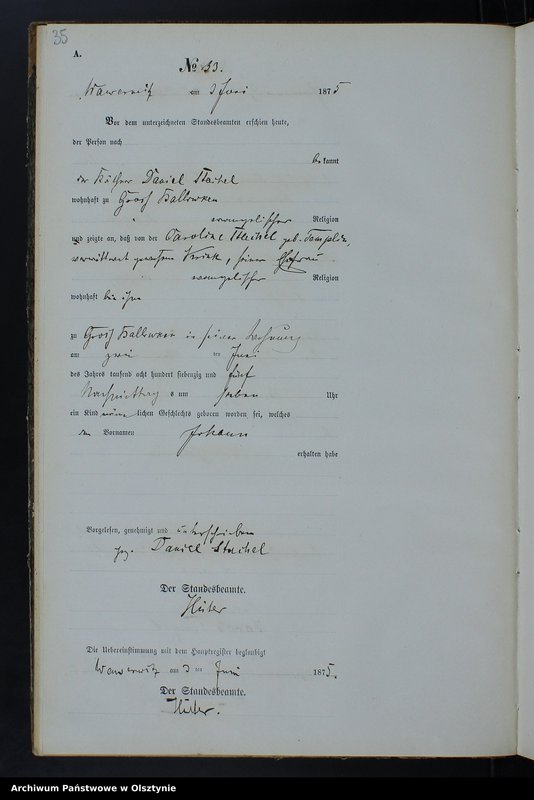 35
A.
No 33.
Wawerwitz am 3 Juni 1875
Vor dem unterzeichneten Standesbeamten erschien heute,
der Person nach
bekannt
der Käthner Daniel Stachel
wohnhaft zu Gross Ballowken
evangelischer Religion
und zeigte an, daß von der Caroline Stachel geb. Templin,
verwittwet gewesene, seiner Ehefrau
evangelischer Religion
wohnhaft bei ihm
zu Gross Ballowken in seiner Wohnung
am zwei ten Juni
des Jahres tausend acht hundert siebenzig und fünf
Nachmittag s um sieben Uhr
ein Kind männlichen Geschlechts geboren worden sei, welches
den Vornamen Johann
erhalten habe
Vorgelesen, genehmigt und unterschrieben
gez. Daniel Stachel
Der Standesbeamte.
Hüter
Die Uebereinstimmung mit dem Hauptregister beglaubigt
Wawerwitz am 3 ten Juni 1875.
Der Standesbeamte.
Hüter.
Archiwum Państwowe w Olsztynie